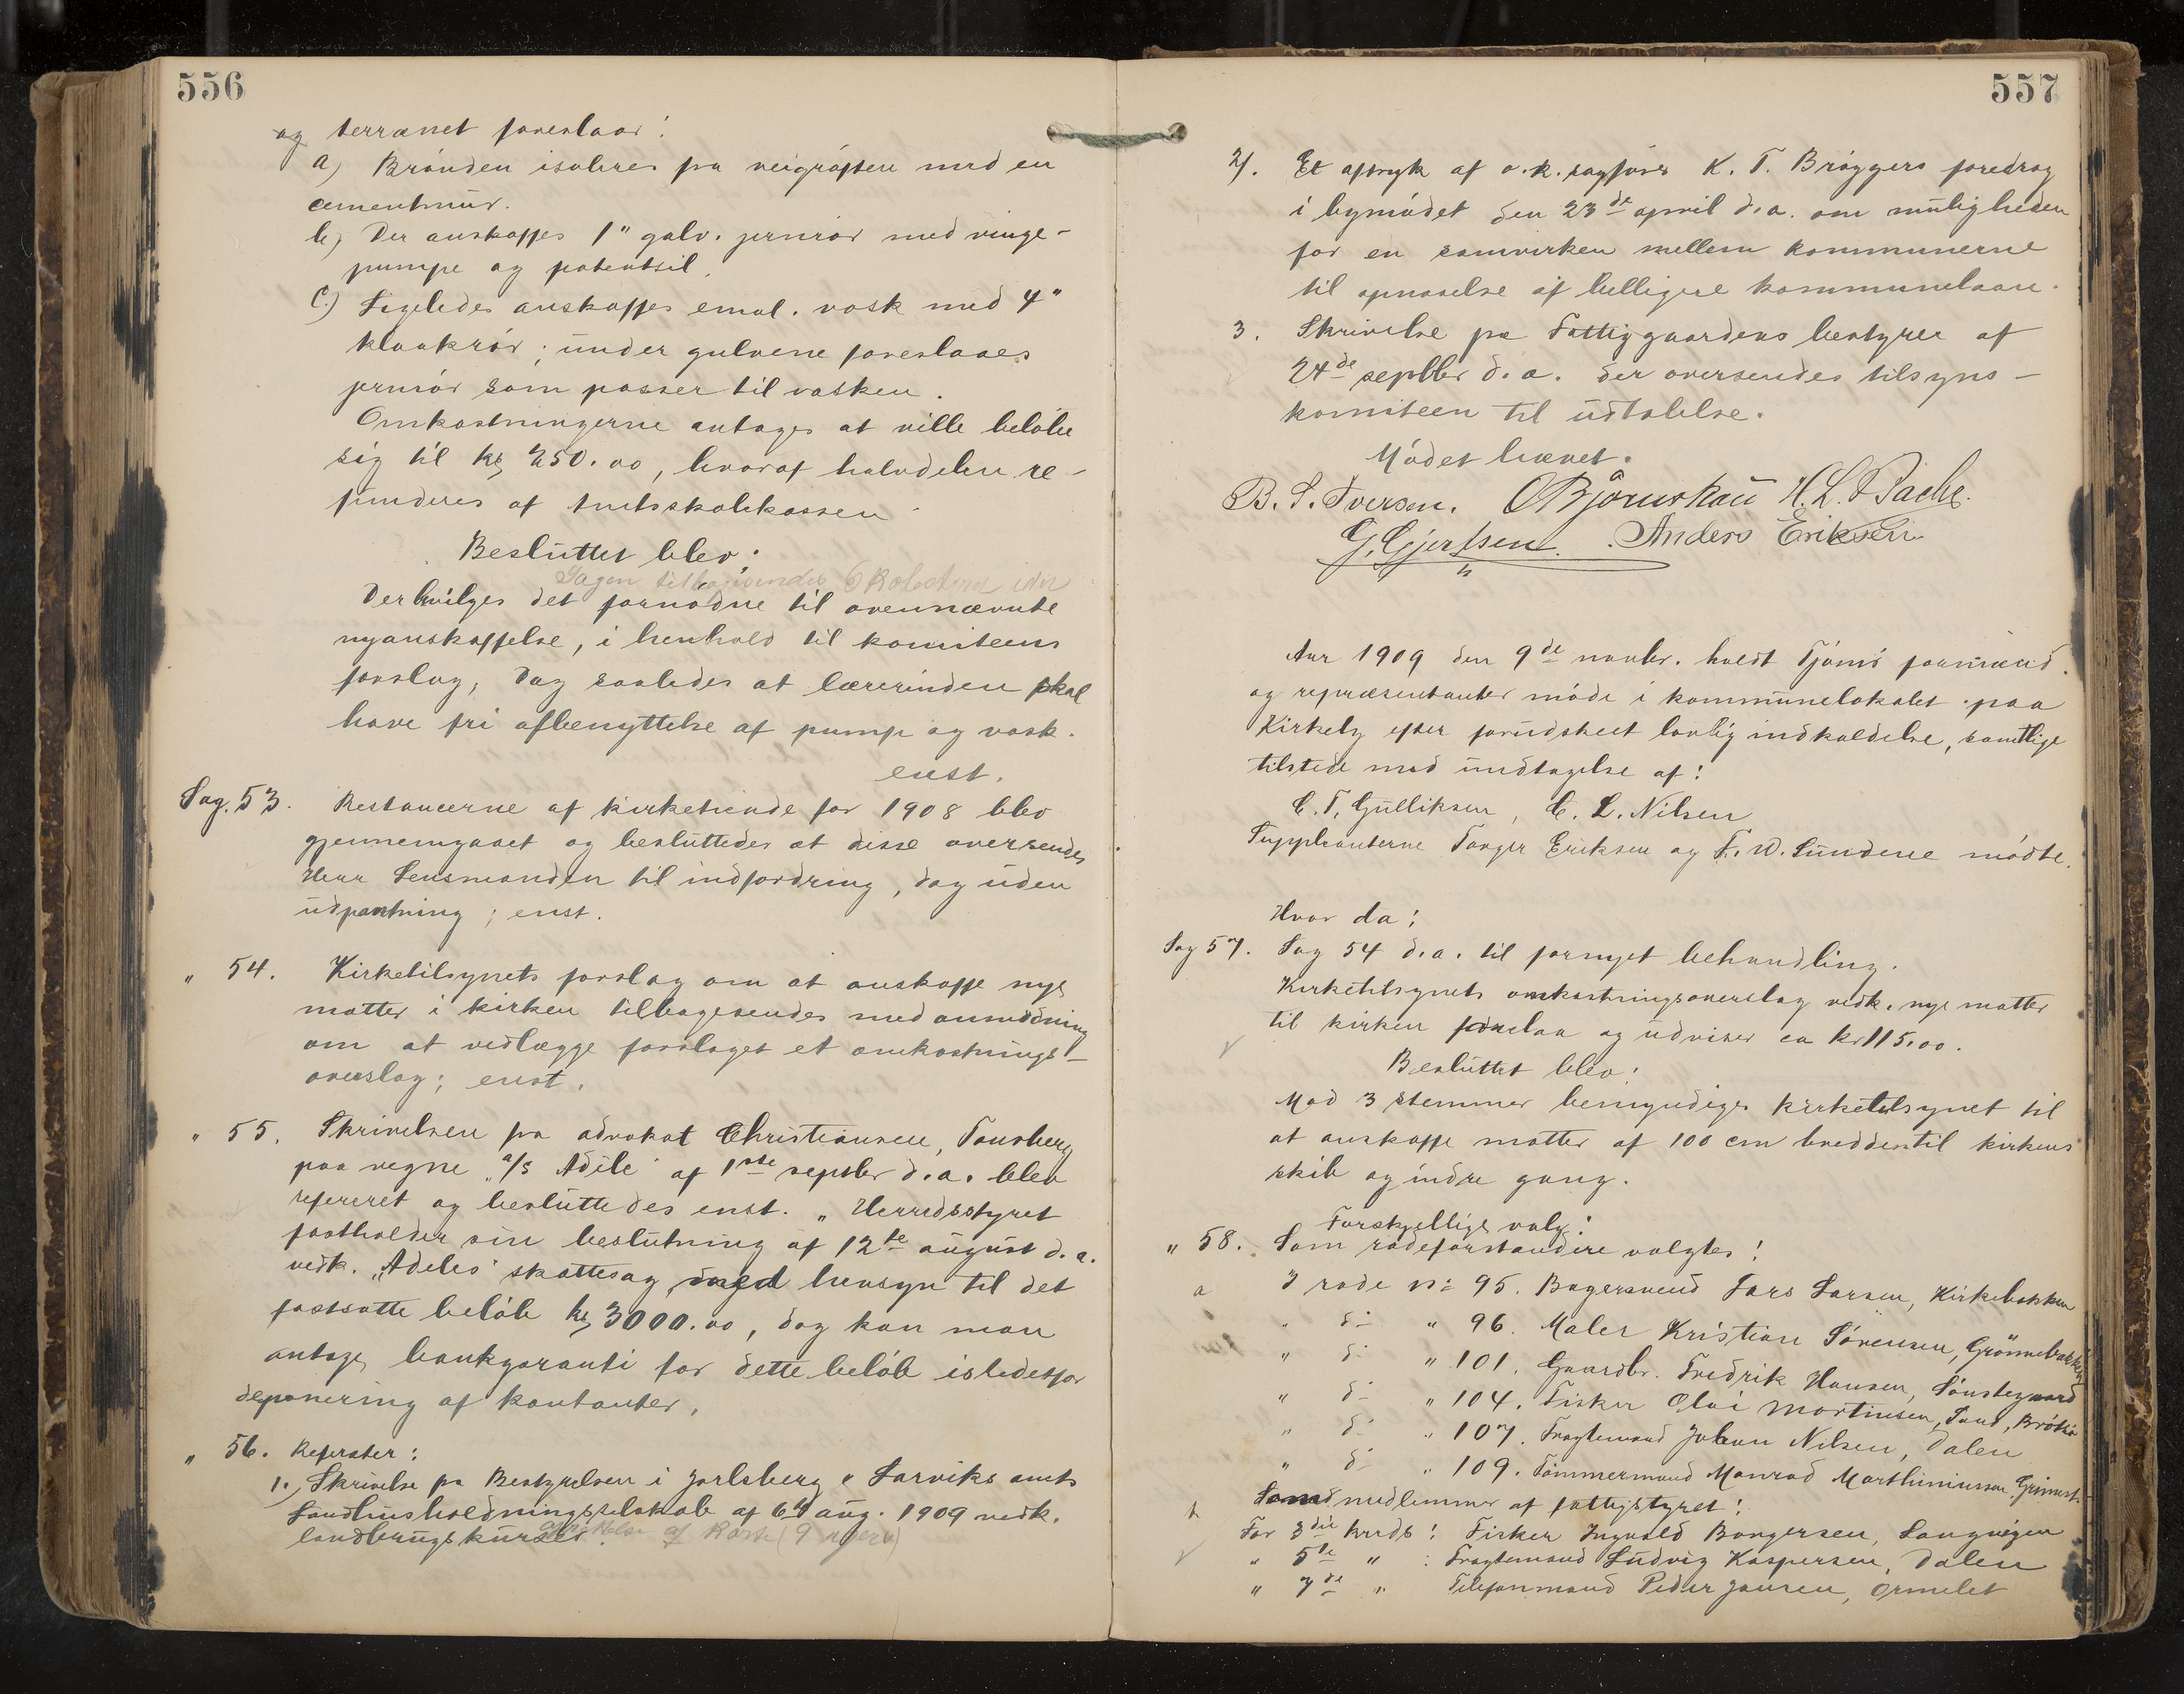 556
og terrænet foreslaar:
a) Brønden isoleres fra veigrøften med en
cementmur.
b) Der anskaffes 1" galv. jernrør med vinge-
pumpe og patentsil.
c.) Ligeledes anskaffes emal. vask med 4"
kloakrør; under gulvene foreslaaes
jernrør som passer til vasken.
Omkostningerne antages at ville beløbe
sig til kr 250.00, hvoraf halvdelen re-
funderes af Amtsskolekassen.
Besluttet blev:
Sagen tilbagesendes
Der bevilges det fornødne til ovennævnte
nyanskaffelse, i henhold til komiteens
forslag, dog saaledes at lærerinden skal
have fri afbenyttelse af pumpe og vask.
enst.
Sag. 53. Restancerne af kirketiende for 1908 blev
gjennemgaaet og besluttedes at disse oversendes
Herr Lensmanden til indfordring, dog uden
udpantning; enst.
" 54. Kirketilsynets forslag om at anskaffe nye
matter i kirken tilbagesendes med anmodning
om at vedlægge forslaget et omkostnings-
overslag; enst.
" 55. Skrivelsen fra advokat Christiansen, Tønsberg
paa vegne "a/s Adele" af 1ste septbr d.a. blev
refereret og besluttedes enst. "Herredsstyret
fastholder sin beslutning af 12te august d.a.
vedk. "Adeles" skattesag med hensyn til det
fastsatte beløb kr 3000.00, dog kan man
antage bankgaranti for dette beløb istedetfor
deponering af kontanter.
" 56. Referater:
1.) Skrivelse fra Bestyrelsen i Jarlsberg & Larviks amts
Landhusholdningsselskab af 6te aug. 1909 vedk.
landbrugskurser.
557
2). Et aftryk af o.r.sagfører K. T. Brøggers foredrag
i bymødet den 23de april d.a. om muligheden
for en samvirken mellem kommunerne
til opnaaelse af billigere kommunelaan.
3. Skrivelse fra Fattiggaardens bestyrer af
24de septbr d.a. der oversendes tilsyns-
komiteen til udtalelse.
Mødet hævet.
B. S. Iversen. O Bjørnskau H. L. Bache.
G. Gjertsen. Anders Eriksen
Aar 1909 den 9de novbr. holdt Tjømø formænd.
og repræsentanter møde i kommunelokalet paa
Kirkeby efter forudskeet lovlig indkaldelse, samtlige
tilstede med undtagelse af:
C. T. Gulliksen, C. L. Nilsen
Supplianterne Torger Eriksen og F. W. Sundene mødte.
Hvor da:
Sag 57. Sag 54 d.a. til fornyet behandling.
Kirketilsynets omkostningsoverslag vedk. nye matter
til kirken forelaa og udviser ca kr 115.00.
Besluttet blev:
Mod 3 stemmer bemyndiges kirketilsynet til
at anskaffe matter af 100 cm bredden til kirkens
skib og indre gang.
Forskjellige valg:
" 58. Som rodeforstandere valgtes:
a I rode no 95. Bagersvend Lars Larsen, Kirkebakken
" do " 96. Maler Kristian Sørensen, Grønnebakken
" do " 101. Gaardbr. Fredrik Hansen, Sønstegaard
" do " 104. Fisker Olai Martinsen, Sand, Brøtsø
" do " 107. Fragtemand Johan Nilsen, Dalen
" do " 109. Tømmermand Monrad Marthiniussen, Grimest.
Som medlemmer af fattigstyret:
For 3die kreds: Fisker Ingvald Borgersen, Langvigen
" 5te " : Fragtemand Ludvig Kaspersen, Dalen
" 7de " Telefonmand Peder Jansen, Ormelet